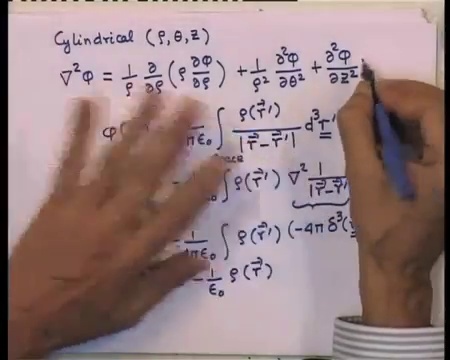 Cylindrical (ρ, θ, z)
∇²φ = 1/ρ ∂/∂ρ (ρ ∂φ/∂ρ) + 1/ρ² ∂²φ/∂θ² + ∂²φ/∂z²
φ( πε₀ ∫ ρ(r⃗′)/|r⃗−r⃗′| d³r′
ε₀ ∫ ρ(r⃗′) ∇² 1/|r⃗−r⃗′|
− 1/4πε₀ ∫ ρ(r⃗′) (−4π δ³(
− 1/ε₀ ρ(r⃗)